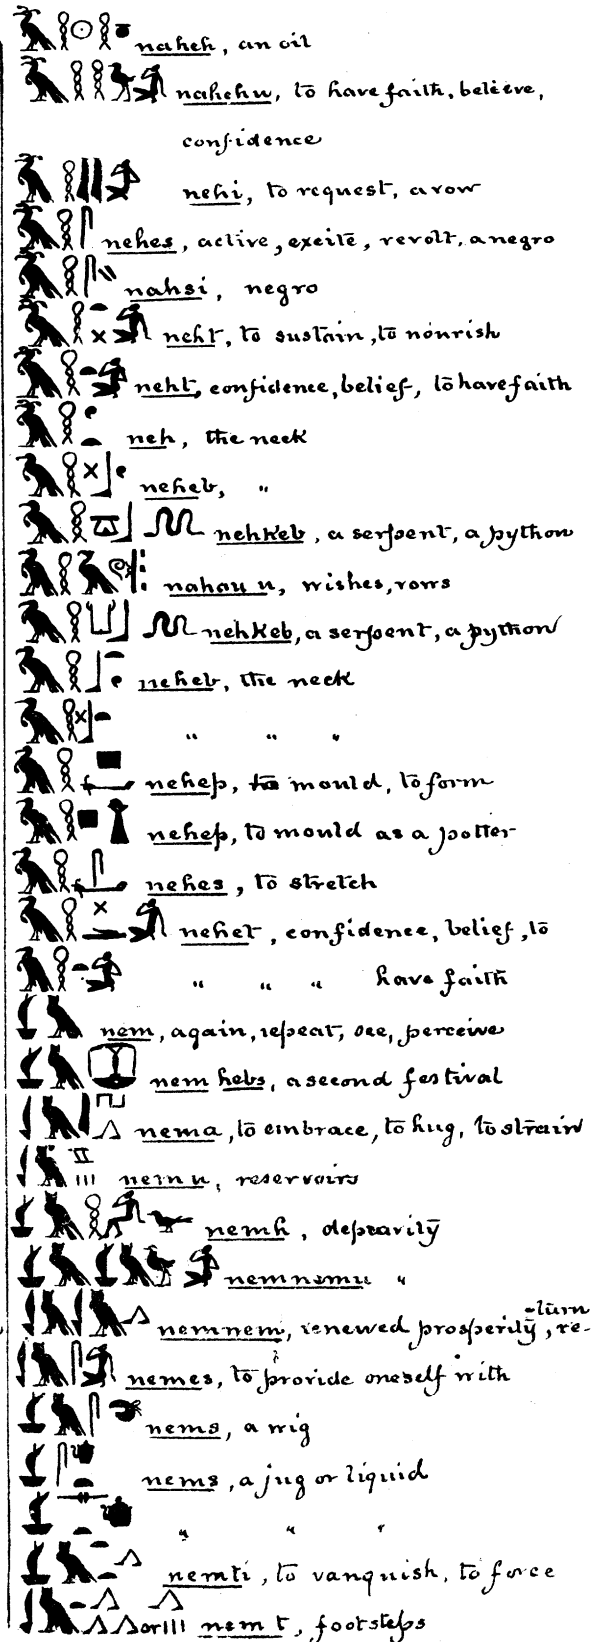 naheh, an oil
nahehu, to have faith, believe,
confidence
nehi, to request, a vow
nehes, active, excite, revolt, a negro
nahsi, negro
neht, to sustain, to nourish
neht, confidence, belief, to have faith
neh, the neck
neheb, "
nehkeb, a serpent, a python
nahau u, wishes, vows
nehkeb, a serpent, a python
neheb, the neck
" " "
nehep, to mould, to form
nehep, to mould as a potter
nehes, to stretch
nehet, confidence, belief, to
" " " have faith
nem, again, repeat, see, perceive
nem hebs, a second festival
nema, to embrace, to hug, to strain
nem u, reservoirs
nemh, depravity
nemnemu "
nemnem, renewed prosperity, re-
-turn
nemes, to provide oneself with
nems, a wig
nems, a jug or liquid
" " "
nemti, to vanquish, to force
or nem t, footsteps